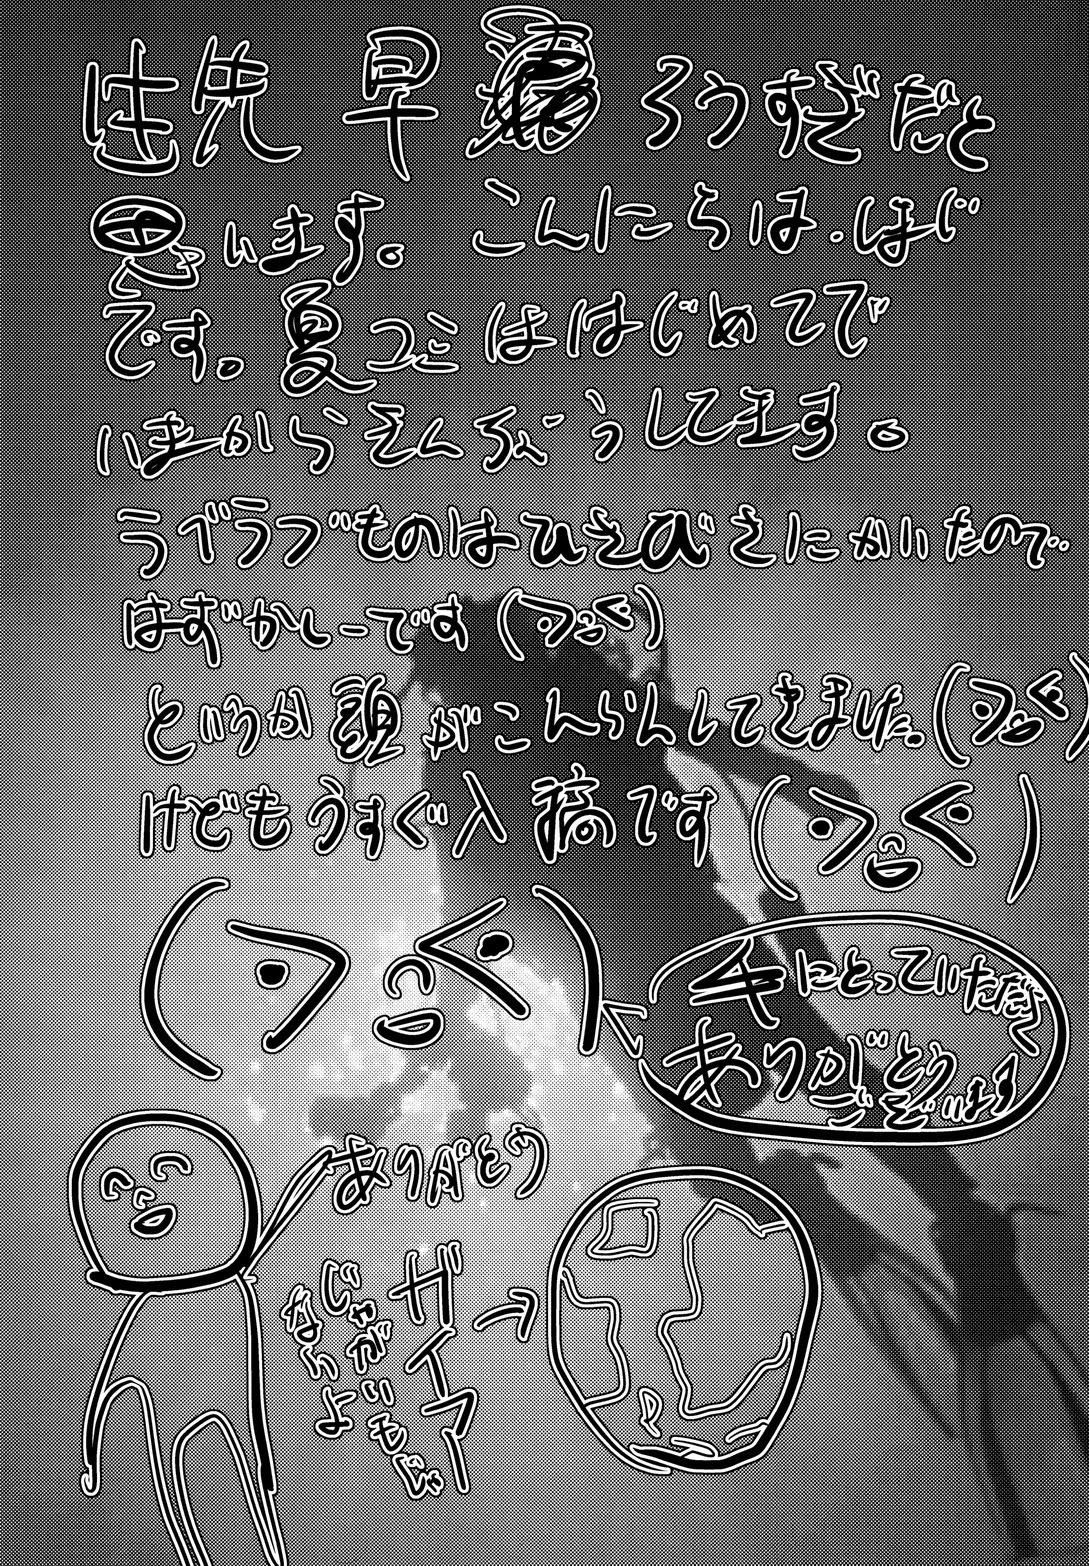 先 早 ろうすぎだと
思います。こんにちは。ほじ
です。夏コミははじめてで
いまからそんぞうしてます。
ラブラブものはひさびさにかいたので
はずかしーです
というか頭がこんらんしてきました。
けどもうすぐ入稿です
手にとっていただき
ありがとうございます
ありがとう
ガイアー
じゃがいもじゃ
ないよ